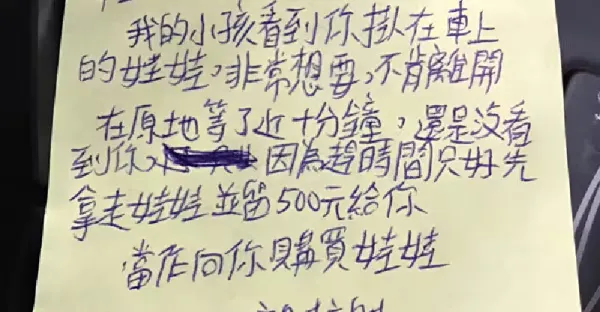 我的小孩看到你掛在車上
的娃娃,非常想要,不肯離開
在原地等了近十分鐘,還是沒看
到你,因為趕時間只好先
拿走娃娃並留500元給你
當作向你購買娃娃